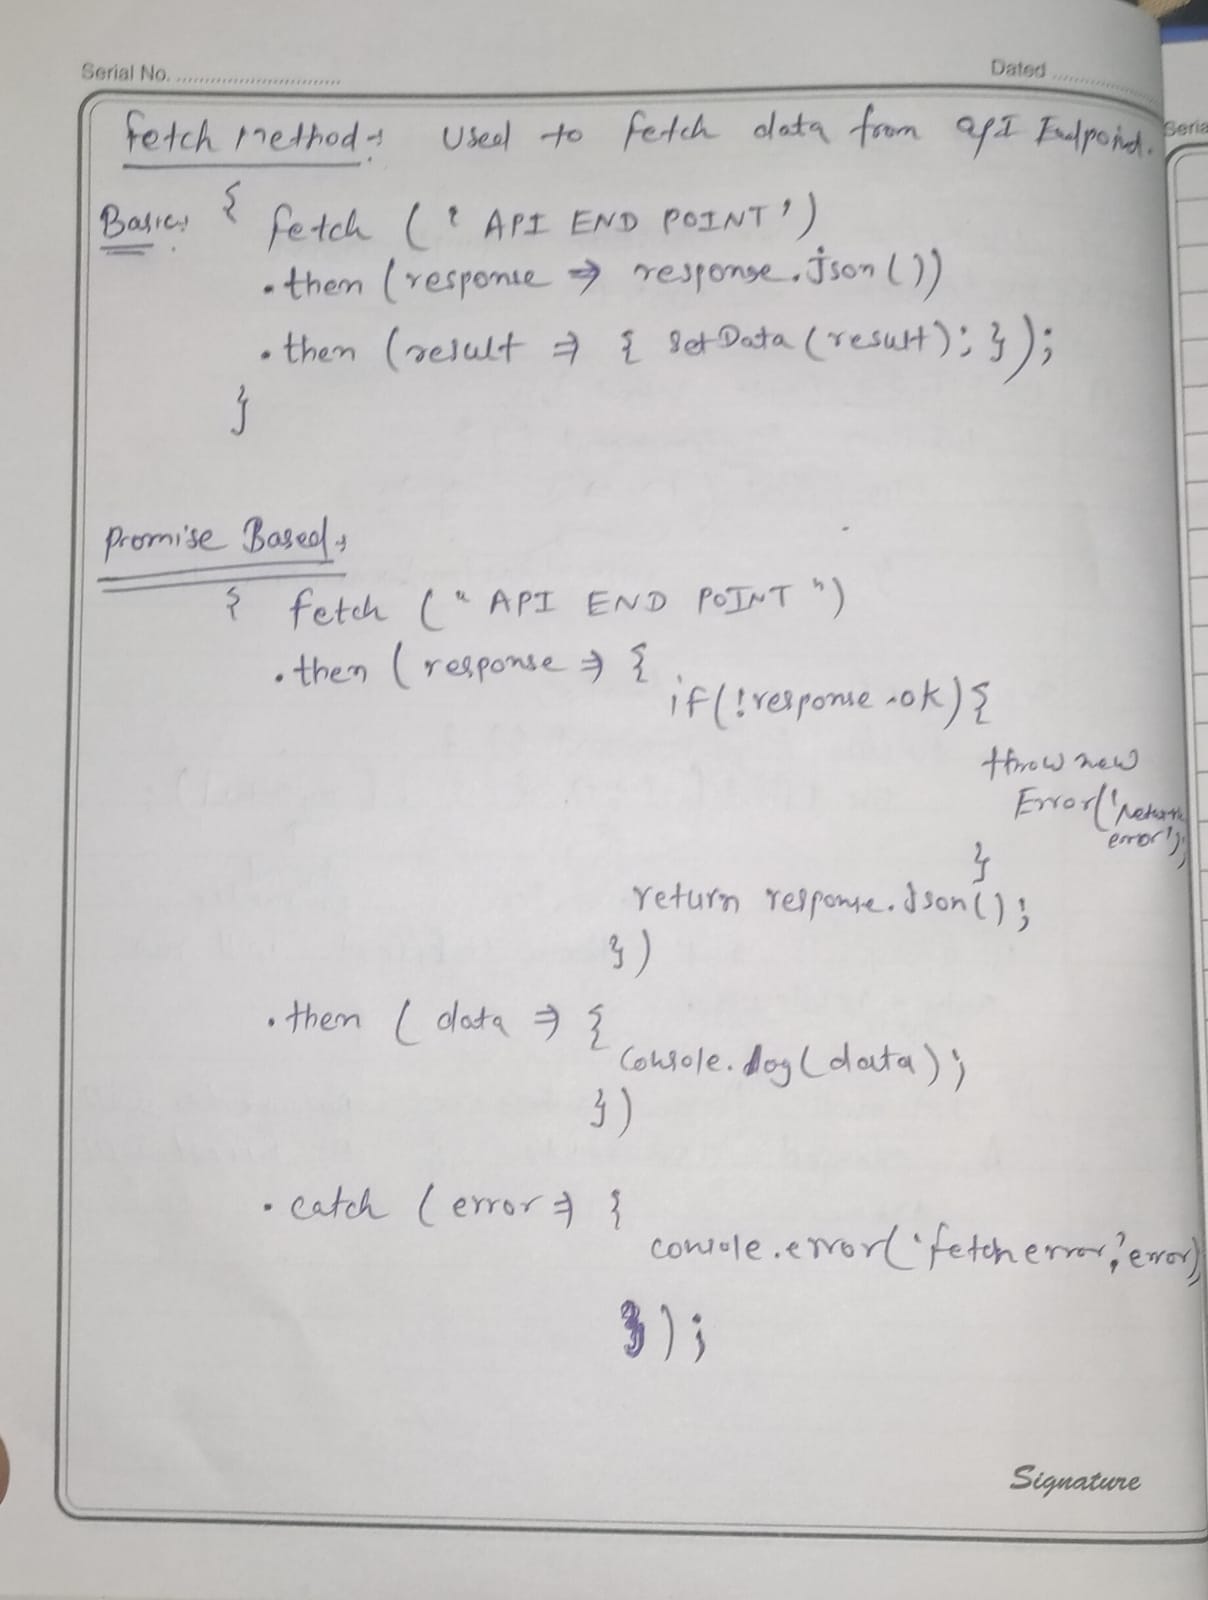 Serial No. ............................
Dated ....................
Seria
Fetch Method → Used to fetch data from apI Endpoint.
Basic → { fetch ('API END POINT')
.then (response => response.json())
.then (result => { setData (result); });
}
Promise Based →
{ fetch ("API END POINT")
.then (response => {
if(!response.ok) {
throw new
Error('network
error');
}
return response.json();
})
.then (data => {
console.log(data);
})
.catch (error => {
console.error('fetch error,' error)
});
Signature